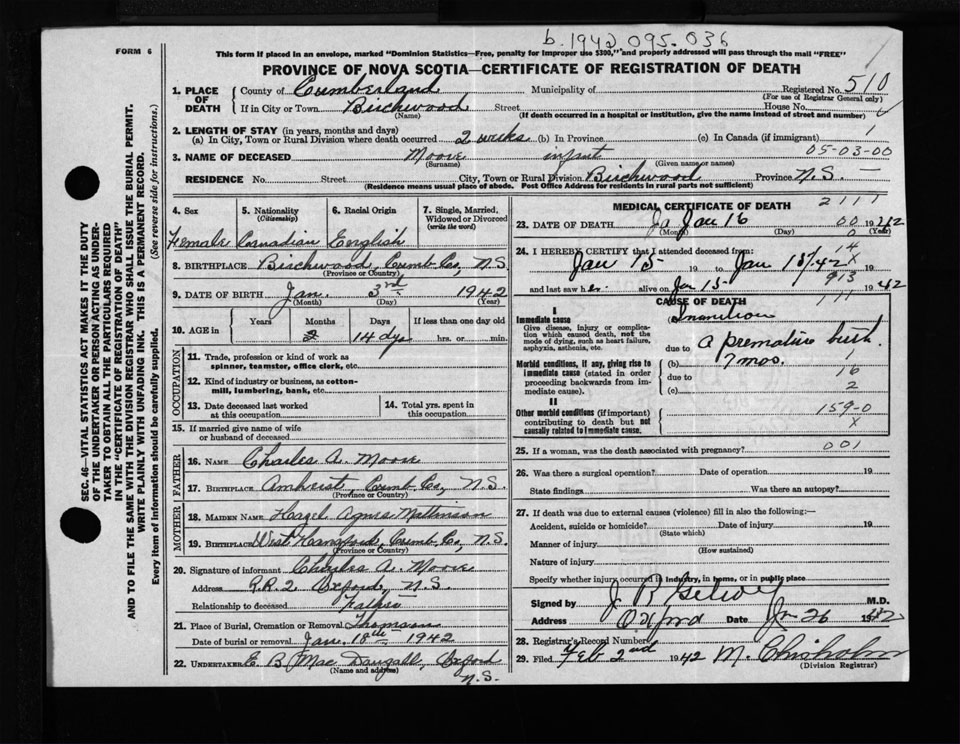 b. 1942 095-036
FORM 6
This form if placed in an envelope, marked "Dominion Statistics—Free, penalty for improper use $300," and properly addressed will pass through the mail "FREE"
PROVINCE OF NOVA SCOTIA—CERTIFICATE OF REGISTRATION OF DEATH
SEC. 46—VITAL STATISTICS ACT MAKES IT THE DUTY
OF THE UNDERTAKER OR PERSON ACTING AS UNDER-
TAKER TO OBTAIN ALL THE PARTICULARS REQUIRED
IN THE "CERTIFICATE OF REGISTRATION OF DEATH"
AND TO FILE THE SAME WITH THE DIVISION REGISTRAR WHO SHALL ISSUE THE BURIAL PERMIT.
WRITE PLAINLY WITH UNFADING INK. THIS IS A PERMANENT RECORD.
Every item of information should be carefully supplied. (See reverse side for instructions.)
1. PLACE OF DEATH
County of Cumberland Municipality of Registered No. 510
(For use of Registrar General only)
If in City or Town Birchwood Street House No.
(Name) (If death occurred in a hospital or institution, give the name instead of street and number)
2. LENGTH OF STAY (in years, months and days)
(a) In City, Town or Rural Division where death occurred 2 weeks (b) In Province (c) In Canada (if immigrant) 1
3. NAME OF DECEASED Moore infant 05-03-00
(Surname) (Given name or names)
RESIDENCE No. Street City, Town or Rural Division Birchwood Province N.S.
(Residence means usual place of abode. Post Office Address for residents in rural parts not sufficient)
4. Sex 5. Nationality (Citizenship) 6. Racial Origin 7. Single, Married, Widowed or Divorced (write the word)
Female Canadian English
8. BIRTHPLACE Birchwood, Cumb. Co., N.S.
(Province or Country)
9. DATE OF BIRTH Jan. 3rd 1942
(Month) (Day) (Year)
10. AGE in Years Months Days If less than one day old
14 dys hrs. or min.
OCCUPATION
11. Trade, profession or kind of work as
spinner, teamster, office clerk, etc.
12. Kind of industry or business, as cotton-
mill, lumbering, bank, etc.
13. Date deceased last worked
at this occupation
14. Total yrs. spent in
this occupation
15. If married give name of wife
or husband of deceased
FATHER
16. NAME Charles A. Moore
17. BIRTHPLACE Amherst, Cumb. Co., N.S.
(Province or Country)
MOTHER
18. MAIDEN NAME Hazel Agnes Mattinson
19. BIRTHPLACE West Hansford, Cumb. Co., N.S.
(Province or Country)
20. Signature of informant Charles A. Moore
Address R.R.2 Oxford, N.S.
Relationship to deceased Father
21. Place of Burial, Cremation or Removal Thomson
Date of burial or removal Jan. 18th 1942
22. UNDERTAKER E. B. Mac Dougall, Oxford
(Name and address) N.S.
MEDICAL CERTIFICATE OF DEATH 2111
23. DATE OF DEATH Jan 16 00 1942
(Month) (Day) (Year)
24. I HEREBY CERTIFY that I attended deceased from: 14
Jan 15 19 to Jan 15/42 X
and last saw her alive on Jan 15 913 1942
CAUSE OF DEATH 111
I
Immediate cause
Give disease, injury or complica-
tion which caused death, not the
mode of dying, such as heart failure,
asphyxia, asthenia, etc.
Inanition
due to a premature birth
7 mos.
Morbid conditions, if any, giving rise to
immediate cause (stated in order
proceeding backwards from im-
mediate cause).
(b) 1
due to 16
(c) 2
II
Other morbid conditions (if important)
contributing to death but not
causally related to immediate cause.
159-0
X
25. If a woman, was the death associated with pregnancy? 001
26. Was there a surgical operation? Date of operation 19
State findings Was there an autopsy?
27. If death was due to external causes (violence) fill in also the following:—
Accident, suicide or homicide? Date of injury 19
(State which)
Manner of injury
(How sustained)
Nature of injury
Specify whether injury occurred in industry, in home, or in public place
Signed by M.D.
Address Oxford Date Jan 26 1942
28. Registrar's Record Number
29. Filed Feb 2nd 1942 M. Chisholm
(Division Registrar)